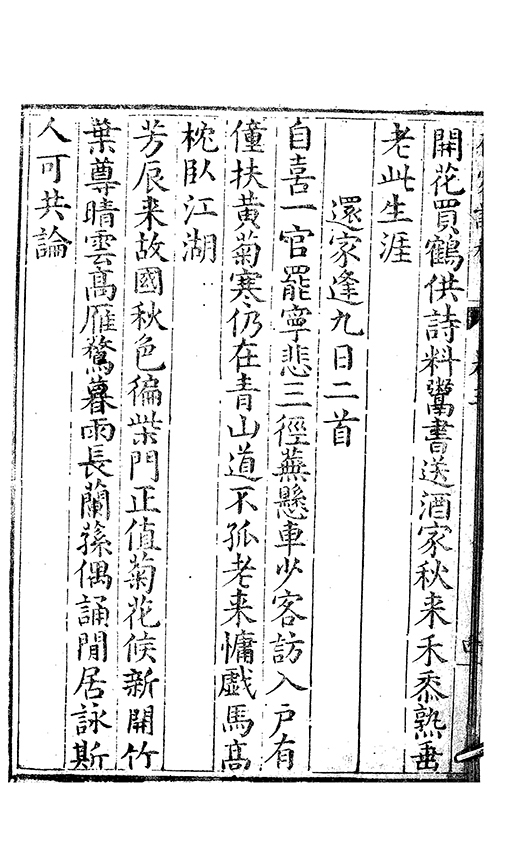 開花買鶴供詩料鬻書送酒家秋来禾黍熟垂
老此生涯
還家逢九日二首
自喜一官罷寧悲三徑蕪懸車少客訪入戸有
僮扶黄菊寒仍在青山道不孤老来慵戯馬髙
枕卧江湖
芳辰来故國秋色徧柴門正值菊花候新開竹
葉尊晴雲髙雁驁暮雨長蘭蓀偶誦閒居詠斯
人可共論